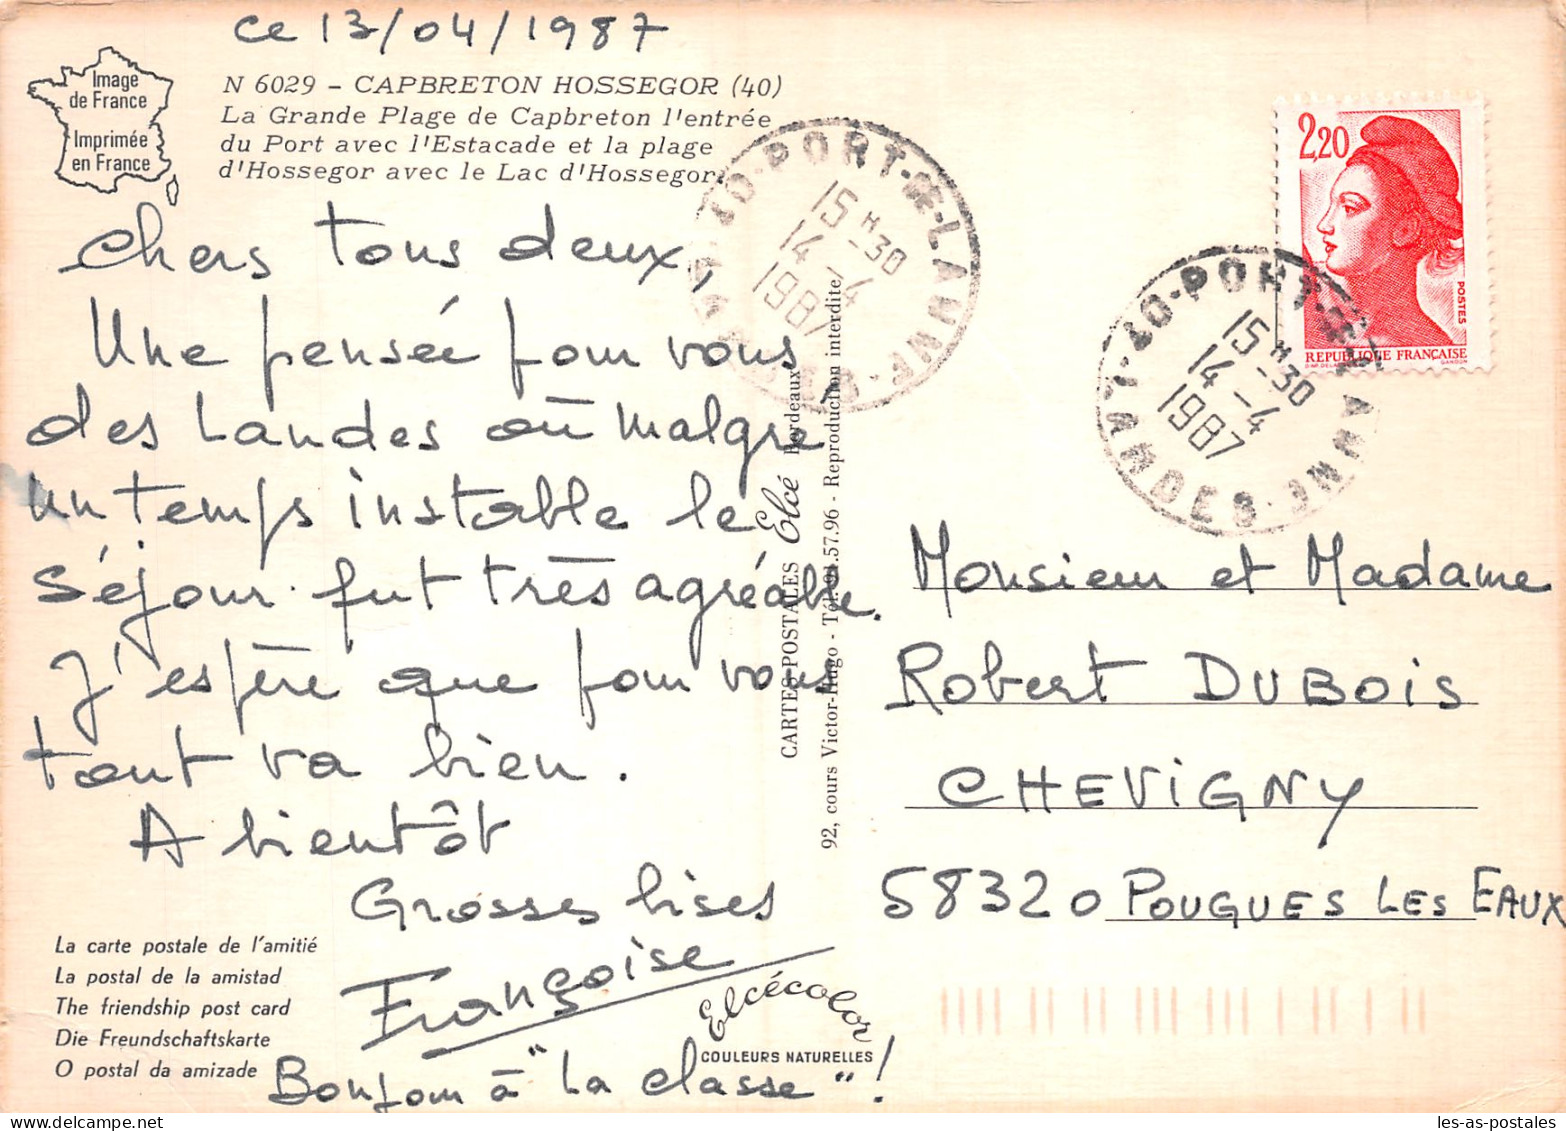 ce 13/04/1987
Image
de France
Imprimée
en France
N 6029 – CAPBRETON HOSSEGOR (40)
La Grande Plage de Capbreton l'entrée
du Port avec l'Estacade et la plage
d'Hossegor avec le Lac d'Hossegor.
Chers tous deux,
Une pensée pour vous,
des Landes où malgré
un temps instable le
séjour fut très agréable.
J'espère que pour vous
tout va bien.
A bientôt
Grosses bises
Françoise
Bonjour à "La classe" !
La carte postale de l'amitié
La postal de la amistad
The friendship post card
Die Freundschaftskarte
O postal da amizade
Elcécolor
COULEURS NATURELLES
CARTES POSTALES Elcé Bordeaux
92, cours Victor-Hugo - Tél. 91.57.96 - Reproduction interdite
40-PORT-DE-LANNE-LANDES
15H30
14-4
1987
40-PORT-DE-LANNE-LANDES
15H30
14-4
1987
2,20
POSTES
REPUBLIQUE FRANÇAISE
GANDON
Monsieur et Madame
Robert DUBOIS
CHEVIGNY
58320 POUGUES LES EAUX
les-as-postales